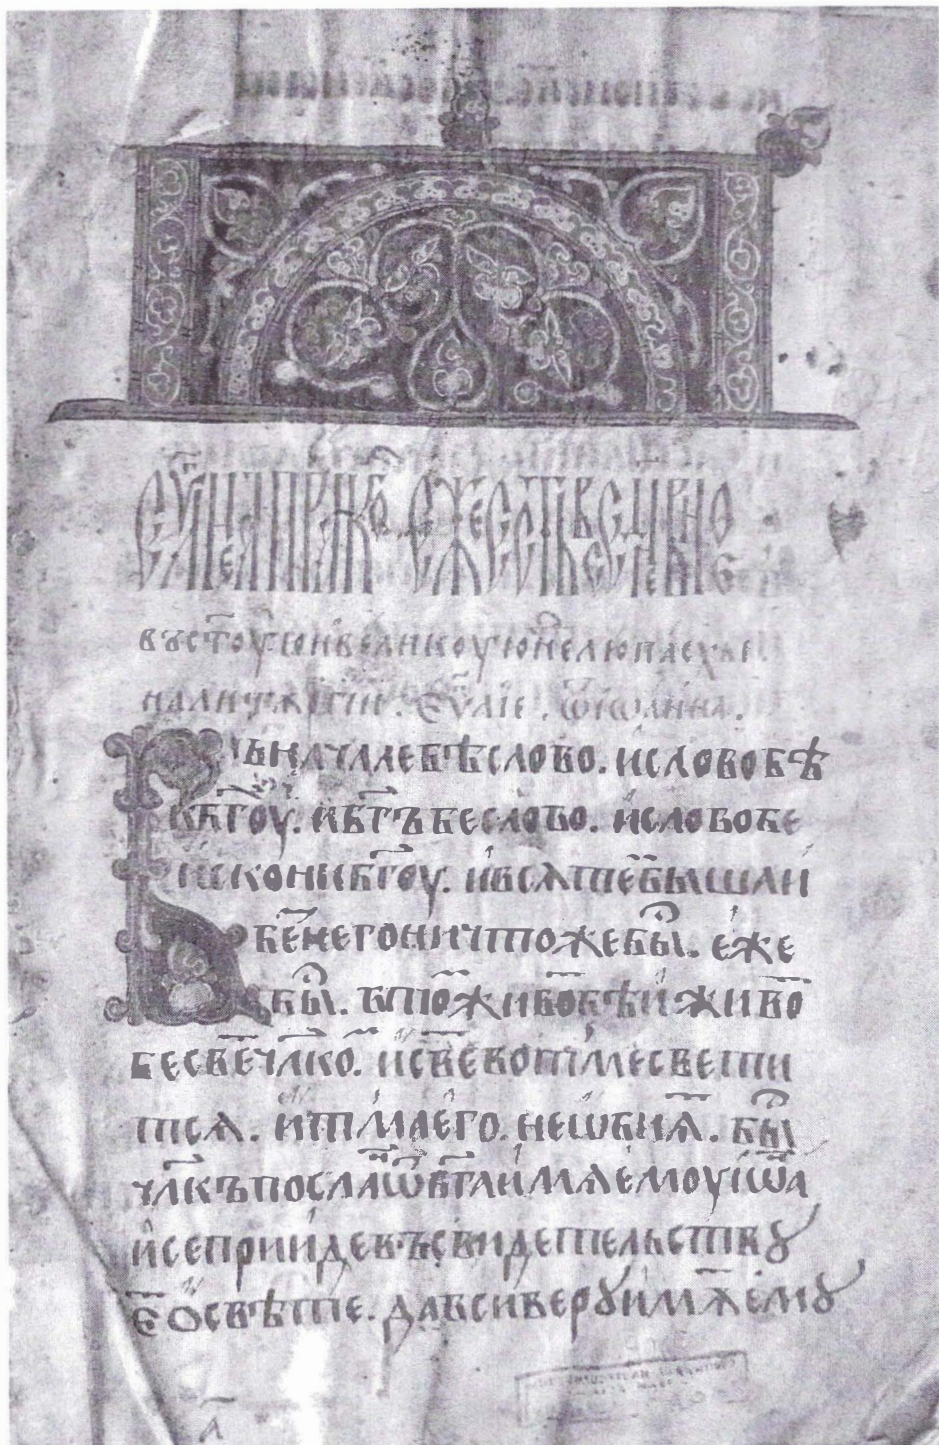 въ ст҃ую и великоую н҃елю пасхы
на литꙋргїи. еѵ҃лїе. ѿ іѡанна.
Въначалаебѣслово. ислово бѣ
къб҃гоу. иб҃гъбеслово. исловобе
исконибг҃оу. ивсѧтѣ҃бышаи
бе҃негоничтожебы҃. еже
бы҃. втѡ҃живо҃бѣи живо҃
бесве҃чл҃ко. исве҃вотмⷧесвети
тсѧ. итмаего. неѡбиꙗ҃. бы҃
чл҃къпосла҃ѿб҃гаимѧемоуіѡ҃а
исеприидевъсвидетельствꙋ
е҃ освѣте. давсивероуимѧ҃емꙋ
а҃